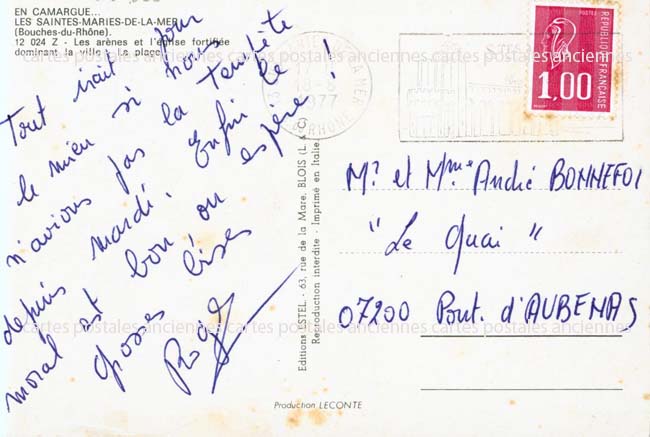 EN CAMARGUE...
LES SAINTES-MARIES-DE-LA-MER
(Bouches-du-Rhône).
12 024 Z - Les arènes et l'église fortifiée
dominant la ville - La plage
Tout irait pour
le mieux si nous
n'avions pas la tempête
depuis mardi. Enfin le
moral est bon on espère !
grosses bises
Editions ESTEL - 63, rue de la Mare, BLOIS (L. & C.)
Reproduction interdite - Imprimé en Italie
1977
RÉPUBLIQUE FRANÇAISE
POSTES
1,00
Mr et Mme André BONNEFOI
"Le Quai"
07200 Pont. d'AUBENAS
Production LECONTE
cartes postales anciennes cartes postales anciennes cartes postales anciennes
cartes postales anciennes cartes postales anciennes cartes postales anciennes